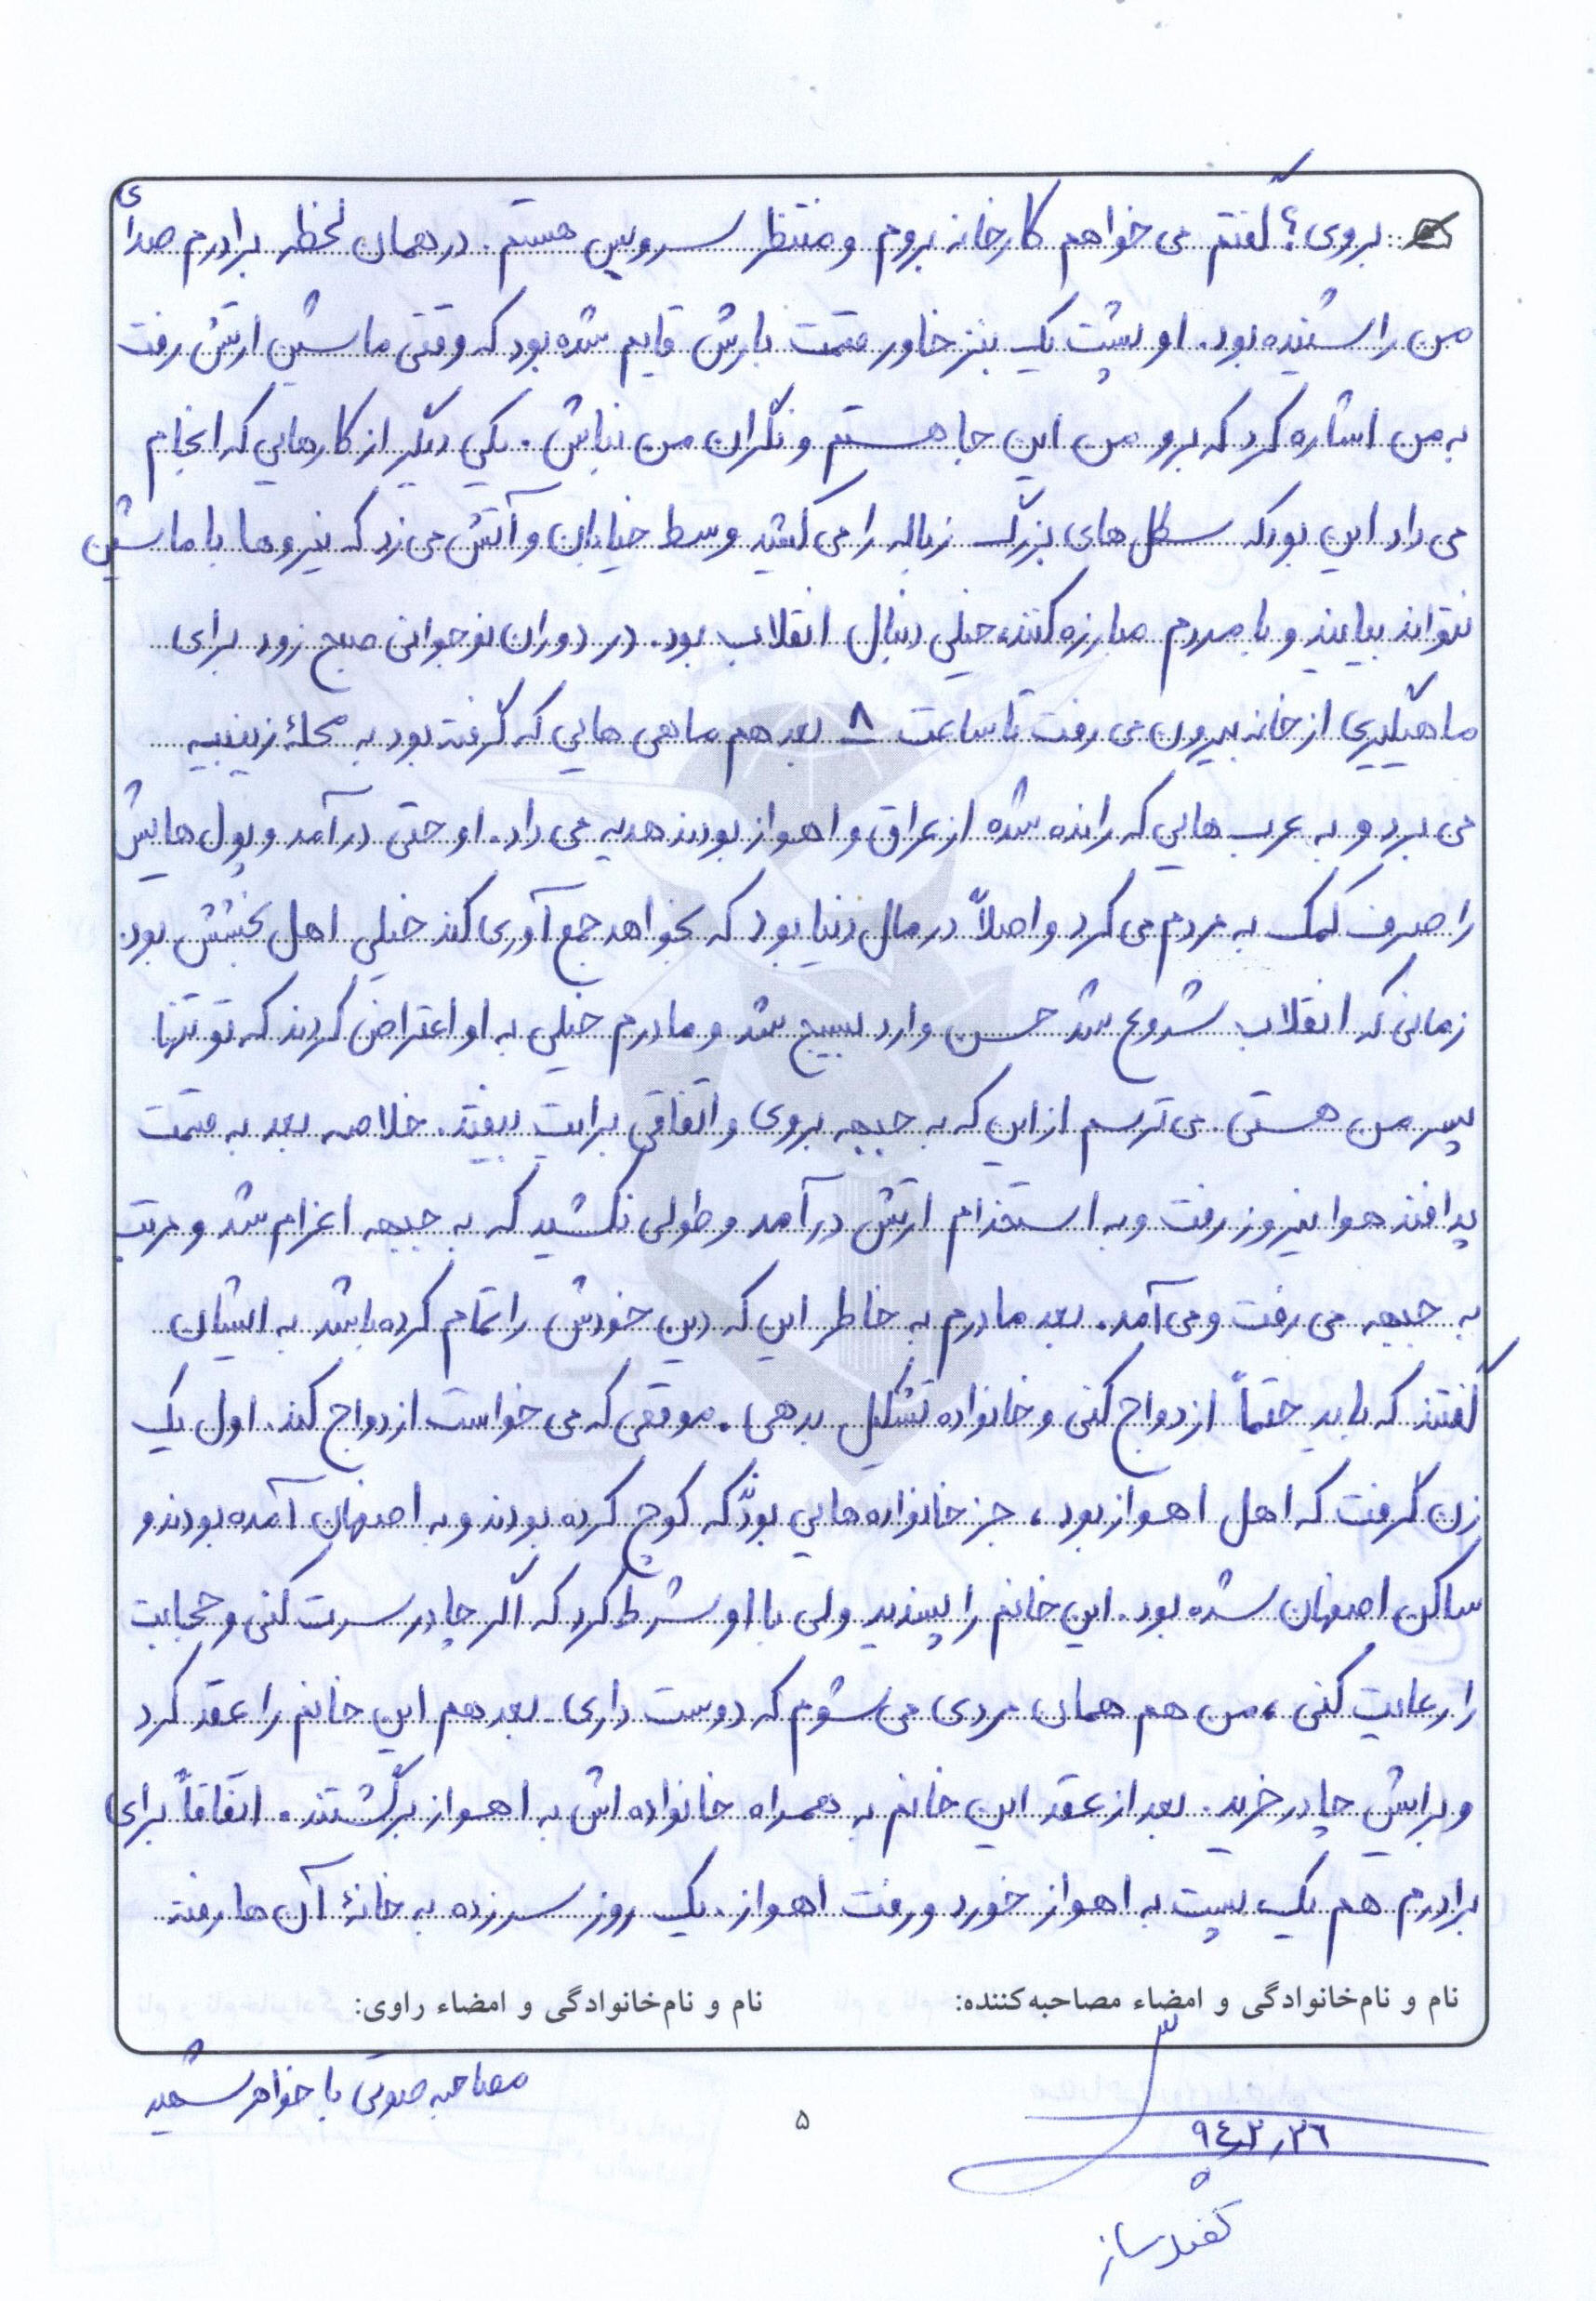 بروی؟ گفتم می خواهم کارخانه بروم و منتظر سرویس هستم. در همان لحظه برادرم صدای
من را شنیده بود. او پشت یک بنز خاور قسمت بارش قایم شده بود که وقتی ماشین ارتش رفت
به من اشاره کرد که برو من این جا هستم و نگران من نباش. یکی دیگر از کارهایی که انجام
می داد این بود که سطل های بزرگ زباله را می کشید وسط خیابان و آتش می زد که نیروها با ماشین
نتواند بیایند و با مردم مبارزه کنند، خیلی دنبال انقلاب بود. در دوران نوجوانی صبح زود برای
ماهیگیری از خانه بیرون می رفت تا ساعت ۸ بعد هم ماهی هایی که گرفته بود به محلهٔ زینبیه
می برد و به عرب هایی که رانده شده از عراق و اهواز بودند هدیه می داد. او حتی درآمد و پول هایش
را صرف کمک به مردم می کرد و اصلاً در مال دنیا بود که بخواهد جمع آوری کند خیلی اهل بخشش بود.
زمانی که انقلاب شروع شد حسن وارد بسیج شد و مادرم خیلی به او اعتراض کردند که تو تنها
پسر من هستی. می ترسم از این که به جبهه بروی و اتفاقی برایت بیفتد. خلاصه بعد به قسمت
پدافند هوانیروز رفت و به استخدام ارتش درآمد و طولی نکشید که به جبهه اعزام شد و مرتب
به جبهه می رفت و می آمد. بعد مادرم به خاطر این که دین خودش را تمام کرده باشد به ایشان
گفتند که باید حتماً ازدواج کنی و خانواده تشکیل بدهی. موقعی که می خواست ازدواج کند. اول یک
زن گرفت که اهل اهواز بود، جز خانواده هایی بود که کوچ کرده بودند و به اصفهان آمده بودند و
ساکن اصفهان شده بود. این خانم را پسندید ولی با او شرط کرد که اگر چادر سرت کنی و حجابت
را رعایت کنی، من هم همان مردی می شوم که دوست داری. بعد هم این خانم را عقد کرد
و برایش چادر خرید. بعد از عقد این خانم به همراه خانواده اش به اهواز برگشتند. اتفاقاً برای
برادرم هم یک پست به اهواز خورد و رفت اهواز. یک روز سرزده به خانهٔ آن ها رفته
نام و نام‌خانوادگی و امضاء مصاحبه‌کننده: نام و نام‌خانوادگی و امضاء راوی:
مصاحبه صوتی با خواهر شهید
۵
۹۴٫۳٫۲۶